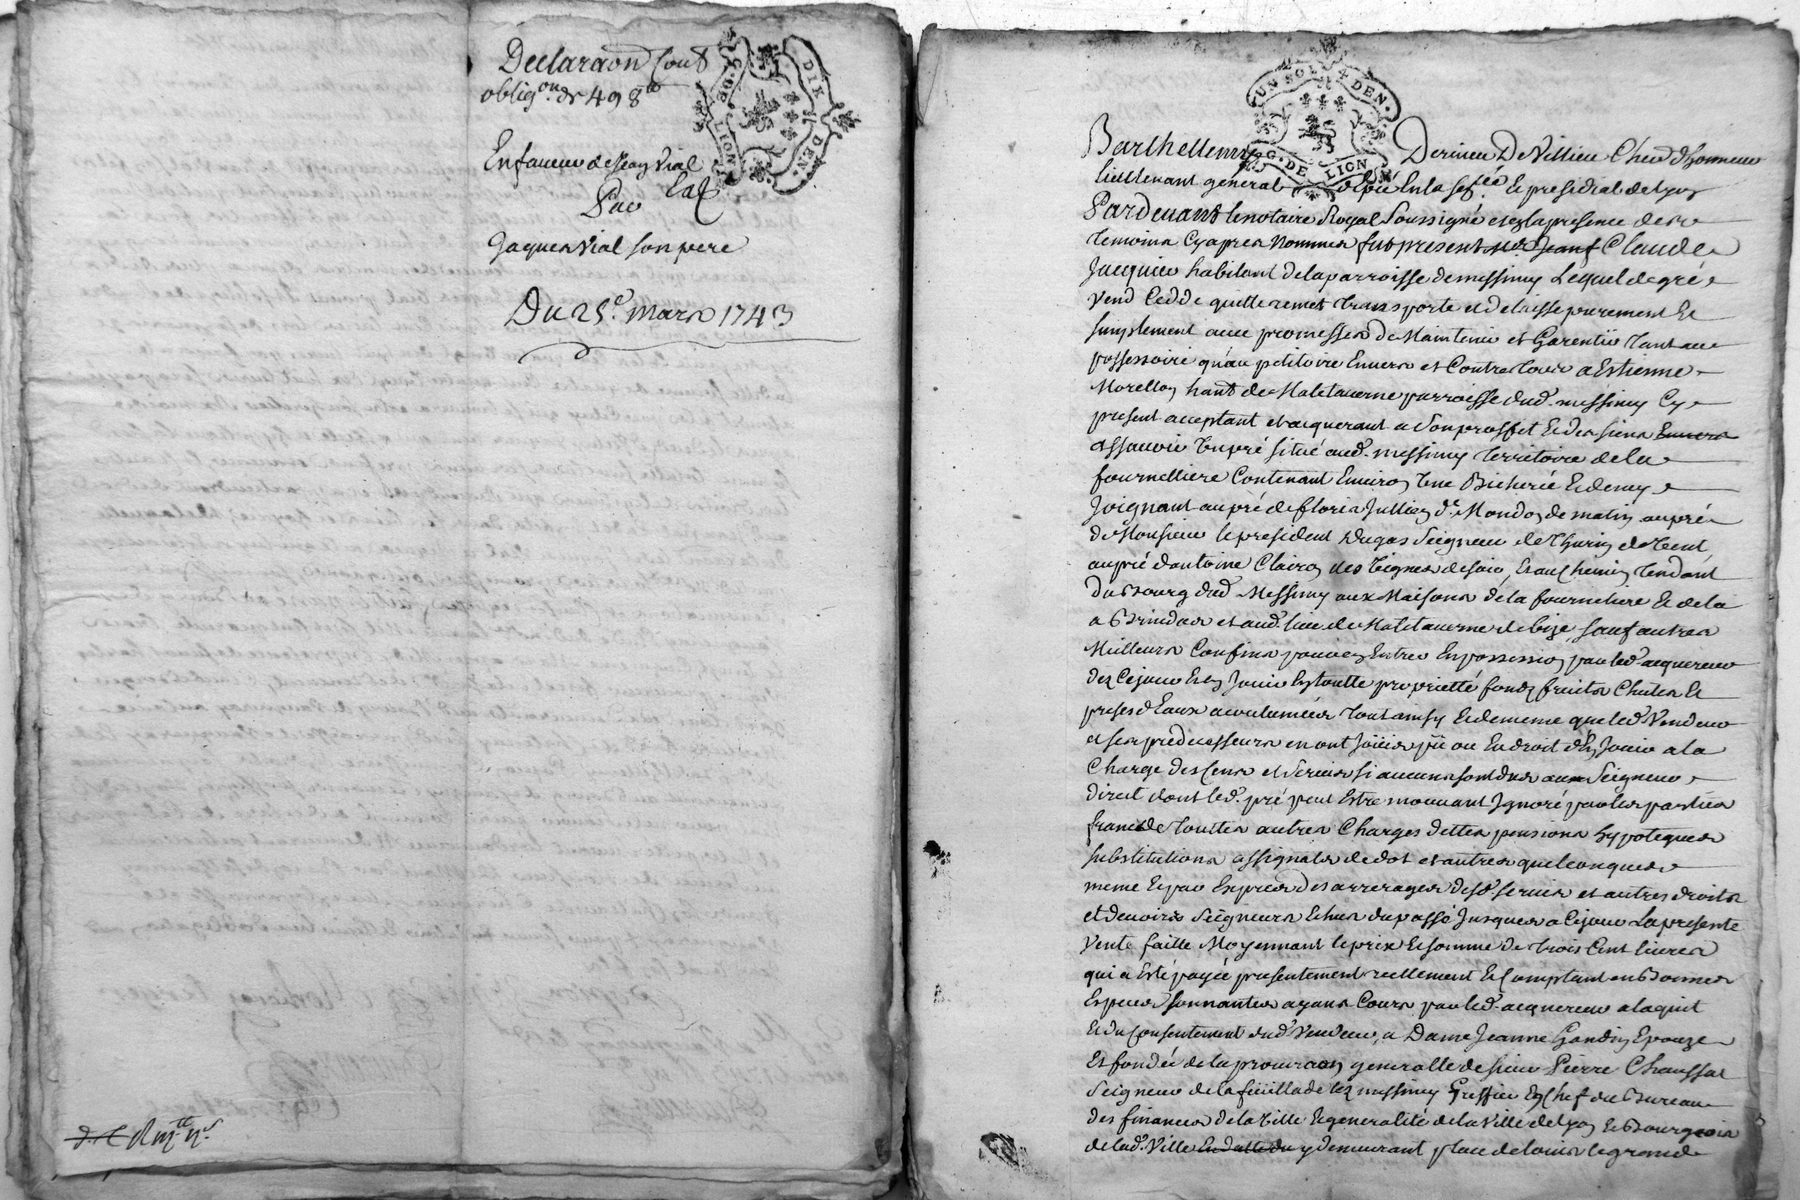 Declaraon sous
obligon de 498 lt
G. DE LION
DIX DEN.
En faveur de Jean Vial
Par
Jaques Vial son pere
Du 25e. Mars 1743
UN SOL DEN.
G. DE LION
Barthellemy Derieu De Villieu Cher d'honneur
lieuttenant general en la senée & presidial de Lyon
Pardevant le notaire Royal Soussigné et en la presence de
temoins cyapres nommes fut present sr. Jean Claude
Jacquier habitant de la parroisse de messimy Lequel de gré
vend cedde quitte remet transporte et delaisse purement et
simplement avec promesses de Maintenir et Garentir tant au
possessoire qu'au petitoire Envers et Contre tous a Estienne
Morellon hant de Maletaverne parroisse dud. messimy Cy
present acceptant et acquerant a son proffit et des siens Envers
assavoir un pré situé aud. messimy territoire de la
fournelliere Contenant Environ Une Bicherée & demy
Joignant au pré de Floris Jullien de Mondon de matin au pré
de Monsieur le president Dugas Seigneur de Thurin de Vent
au pré d'antoine Clairon des Vignes de soir, et au chemin tendant
du Bourg dud. Messimy aux Maisons de la fourneliere & de la
a Brindas et aud. lieu de Maletaverne de bize, sauf autres
Meilleurs Confins pour en Entrer En possession par led. acquereur
dez Cejour & En Jouir En toutte proprietté fondz fruits Chutes Et
prises d'Eaux acoutumées tout ainsy & de meme que led. Vendeur
et ses predecesseurs en ont Joüis pü ou En droit d'En Jouir a la
Charge des Cens et Servis si aucuns sont dus au Seigneur
direct dont led. pré peut Estre mouvant Ignoré par les parties
franc de touttes autres Charges dettes pensions hypoteques
substitutions assignats de dot et autres quelconques
meme & par Exprès des arrerages desd. servis et autres droits
et devoirs Seigneurs Echus du passé Jusques a Cejour La presente
Vente faitte Moyennant le prix & somme de trois Cent livres
qui a Esté payée presentement reellement & Comptant en Bonnes
Especes sonnantes ayans Cours par led. acquereur a l'aquit
& du Consentement dud. Vendeur, a Dame Jeanne Gondin Epouze
et fondée de la procuraon generalle de sieur Pierre Chaussat
Seigneur de la feüillade lez messimy Greffier En Chef du Bureau
des finances de la Ville & generalité de la Ville de Lyon & Bourgeois
de lad. Ville En datte du y demeurant place de Louis le grand